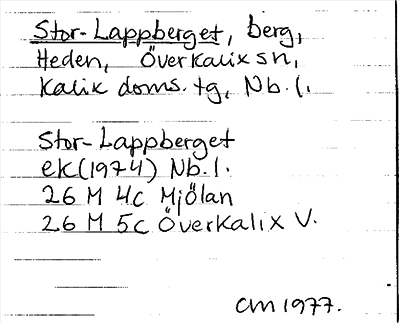 Stor-Lappberget, berg,
Heden, Överkalix sn,
Kalix doms. tg, Nb. l.
Stor-Lappberget
ek(1974) Nb. l.
26 M 4c Mjölan
26 M 5c Överkalix V.
CM 1977.